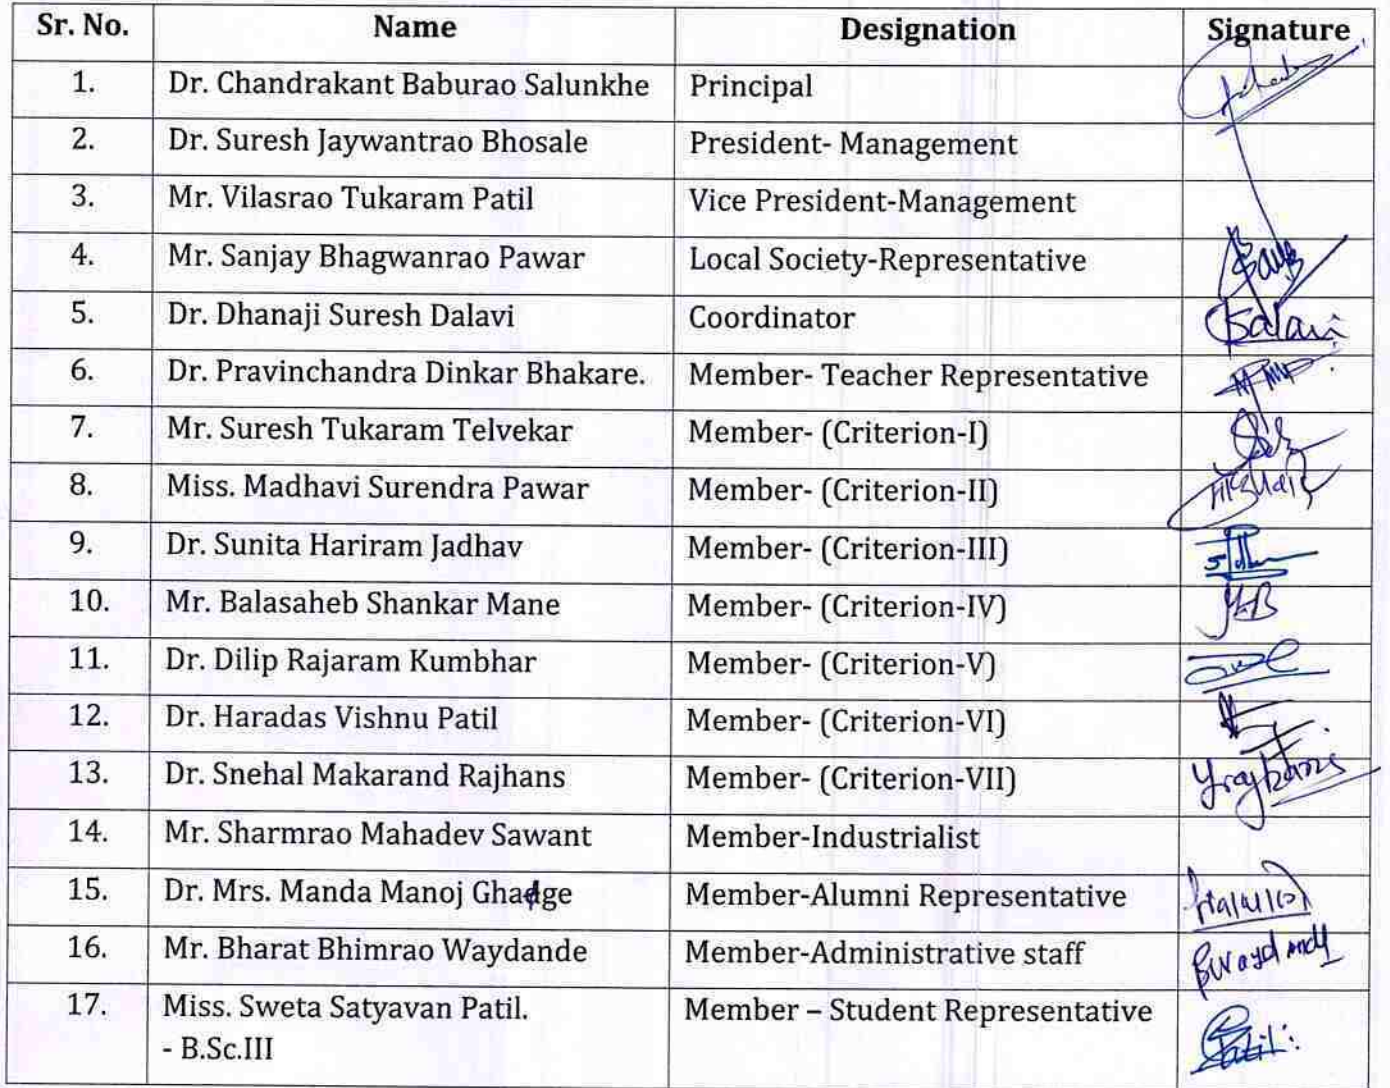 Sr. No. Name Designation Signature
1. Dr. Chandrakant Baburao Salunkhe Principal
2. Dr. Suresh Jaywantrao Bhosale President- Management
3. Mr. Vilasrao Tukaram Patil Vice President-Management
4. Mr. Sanjay Bhagwanrao Pawar Local Society-Representative
5. Dr. Dhanaji Suresh Dalavi Coordinator
6. Dr. Pravinchandra Dinkar Bhakare. Member- Teacher Representative
7. Mr. Suresh Tukaram Telvekar Member- (Criterion-I)
8. Miss. Madhavi Surendra Pawar Member- (Criterion-II)
9. Dr. Sunita Hariram Jadhav Member- (Criterion-III)
10. Mr. Balasaheb Shankar Mane Member- (Criterion-IV)
11. Dr. Dilip Rajaram Kumbhar Member- (Criterion-V)
12. Dr. Haradas Vishnu Patil Member- (Criterion-VI)
13. Dr. Snehal Makarand Rajhans Member- (Criterion-VII)
14. Mr. Sharmrao Mahadev Sawant Member-Industrialist
15. Dr. Mrs. Manda Manoj Ghadge Member-Alumni Representative
16. Mr. Bharat Bhimrao Waydande Member-Administrative staff
17. Miss. Sweta Satyavan Patil. Member – Student Representative
- B.Sc.III